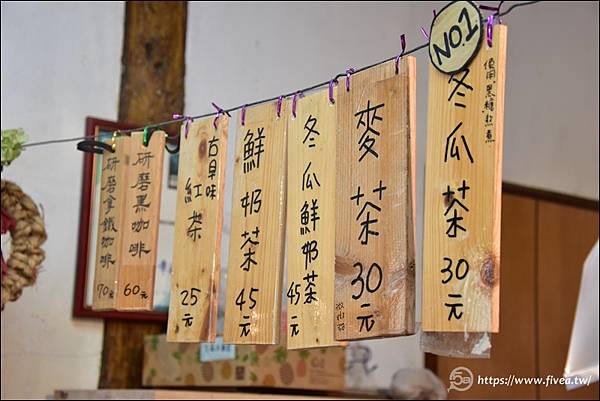 研磨拿鐵咖啡
70元
研磨黑咖啡
60元
古早味
紅茶
25元
鮮奶茶
45元
冬瓜鮮奶茶
45元
麥茶
30元
NO.1
使用"黑糖"熬煮
冬瓜茶
30元
https://www.fivea.tw/